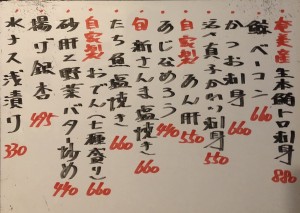 奄美産 生本鮪トロ刺身 880
鯨ベーコン 660
かつお刺身 660
活〆真子かれい刺身 550
自家製 あん肝 550
あじなめろう 440
旬 新さんま塩焼き 660
たち魚塩焼き 660
自家製 おでん(七種盛り) 660
砂肝と野菜バター炒め 440
揚げ銀杏 495
水ナス浅漬け 330